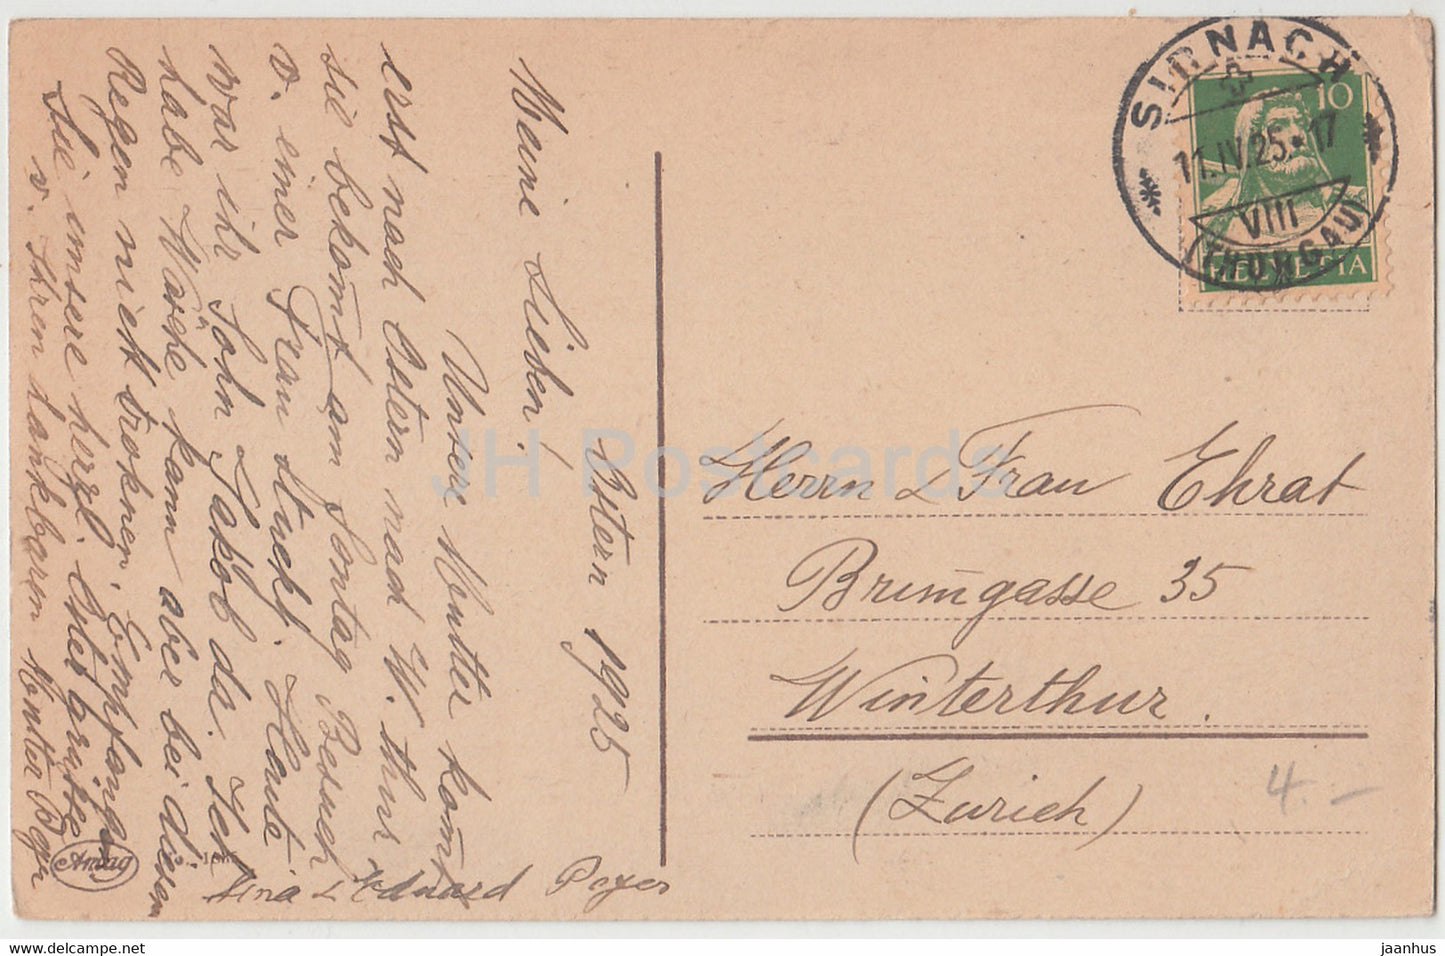 Ostern 1925
Meine Lieben!
Unsere Mutter komt
erst nach Ostern nach W. thur
sie bekomt am Sontag Besuch
v. einer Frau Stucki. Heute
war ihr Sohn Jakob da. Ich
habe Wäsche kann aber bei diesem
Regen nicht troknen. Empfangen
Sie unsere herzl. Ostergrüsse
v. Ihren dankbaren Mutter
Lina & Eduard
Amag
SIRNACH
11.IV.25.17
VIII
(THURGAU)
10
HELVETIA
Herrn & Frau Ehrat
Brun̄gasse 35
Winterthur.
(Zürich)
4.–
JH Postcards
jaanhus